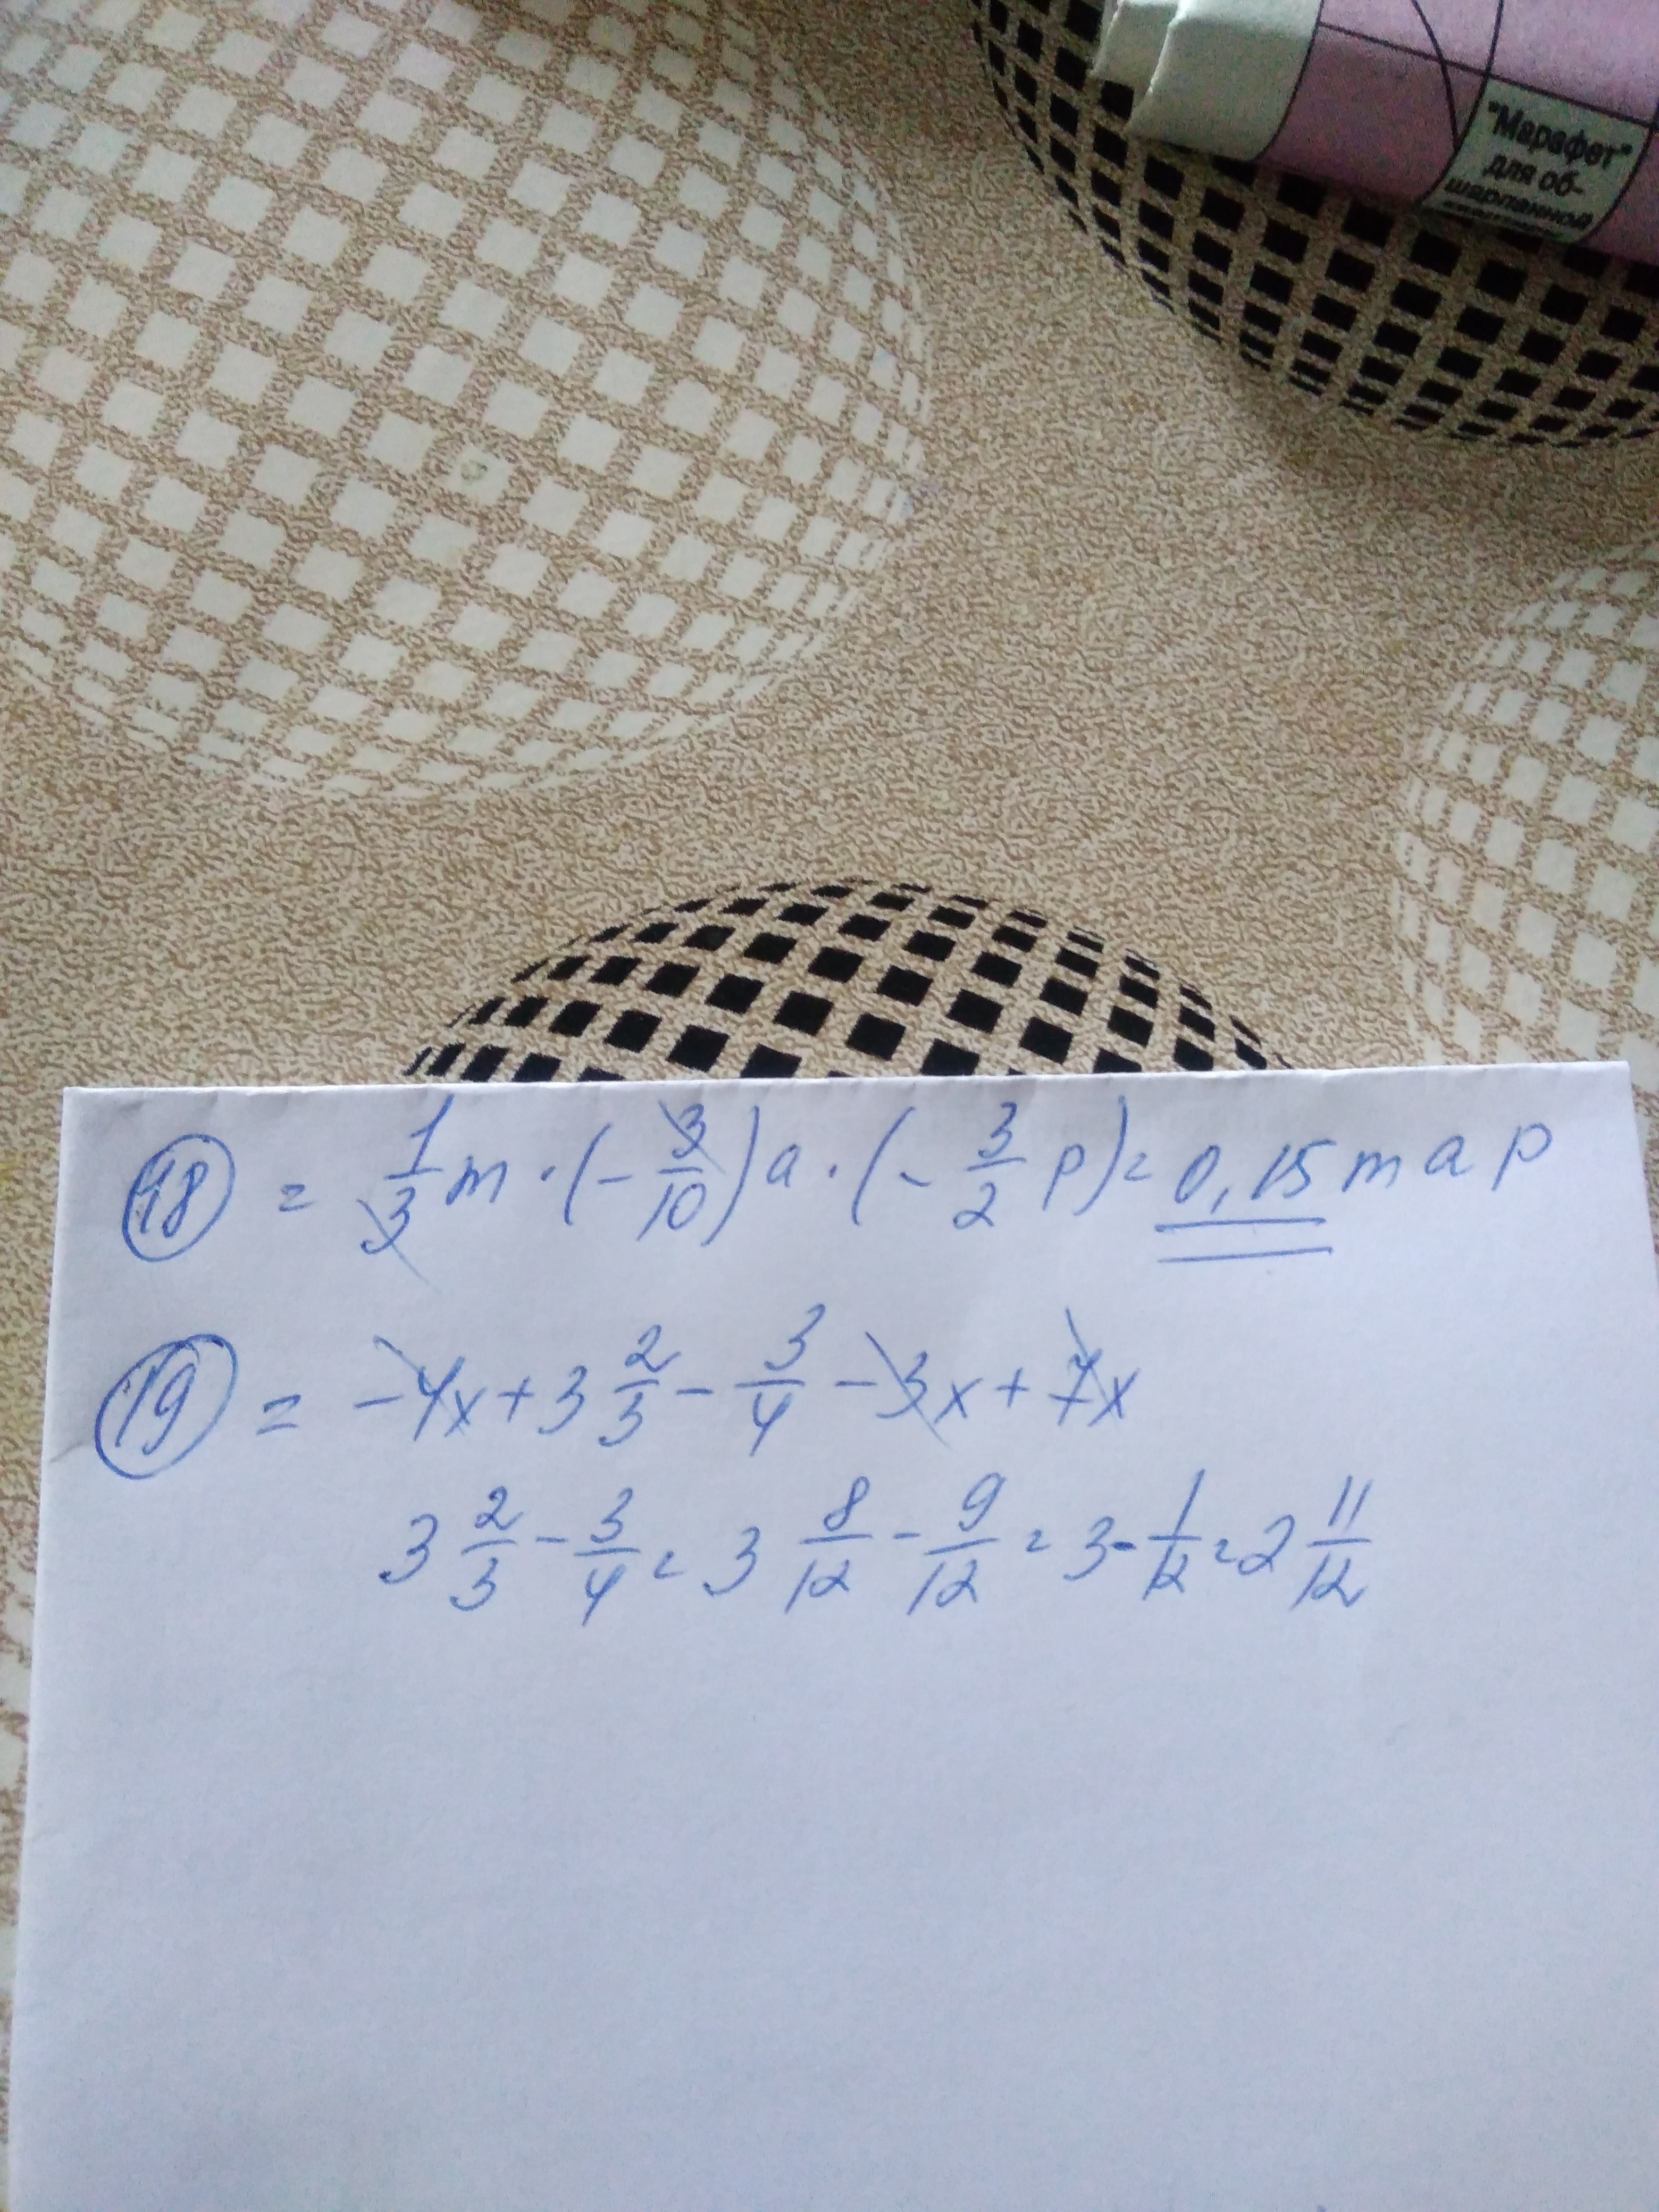 "Марафет"
для об-
шарпанной
18 = 1/3 m · (- 3/10) a · (- 3/2 p) = 0,15 m a p
19 = -4x + 3 2/3 - 3/4 - 3x + 7x
3 2/3 - 3/4 = 3 8/12 - 9/12 = 3 - 1/12 = 2 11/12